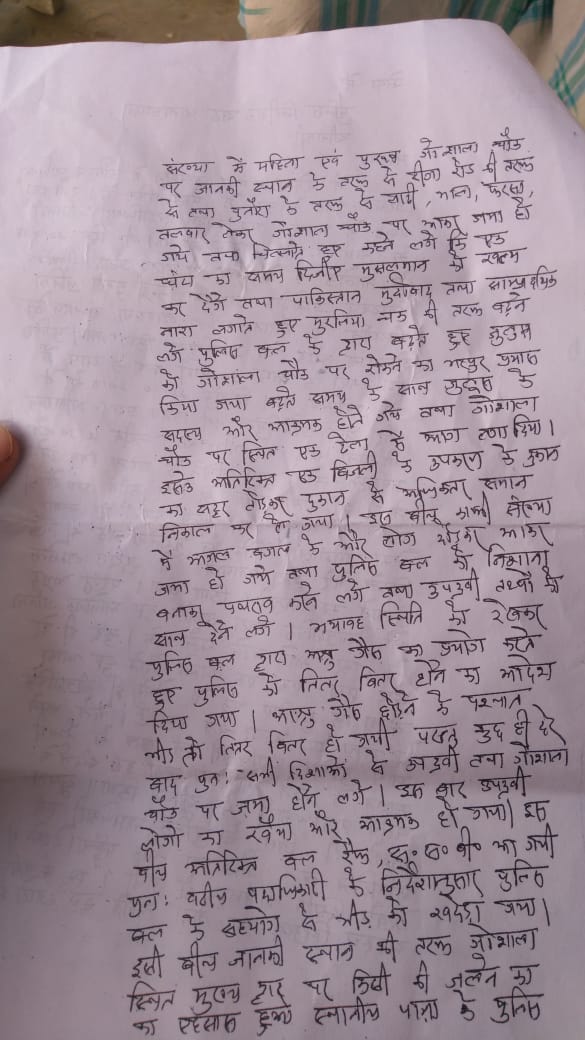 संख्या में महिला एवं पुरुष गोशाला चौक
पर जानकी स्थान के तरफ से रीगा रोड की तरफ
से तथा पुनौरा के तरफ से लाठी, भाला, फरसा,
तलवार लेकर गोशाला चौक पर आकर जमा हो
गये तथा चिल्लाते हुए कहने लगे कि एक
घंटा का समय दिजीए मुसलमान को खत्म
कर देंगे तथा पाकिस्तान मुर्दाबाद तथा साम्प्रदायिक
नारा लगाते हुए मुरलिया चक की तरफ बढ़ने
लगे पुलिस बल के द्वारा बढ़ते हुए जुलुस
को गोशाला चौक पर रोकने का भरपुर प्रयास
किया गया बढ़ते समय के साथ जुलुस के
सदस्य और आक्रमक होते गये तथा गोशाला
चौक पर स्थित एक ठेला में आग लगा दिया।
इसके अतिरिक्त एक बिजली के उपकरण के दुकान
का शटर तोड़कर दुकान से अधिकतर समान
निकाल कर ले गया। इस बीच काफी संख्या
में अगल बगल के और लोग आकर
जमा हो गये तथा पुलिस बल को निशाना
बनाकर पथराव करने लगे तथा उपद्रवी तत्वों को
साथ देने लगे। भयावह स्थिति को देखकर
पुलिस बल द्वारा अश्रु गैस का प्रयोग करते
हुए पुलिस को तितर बितर होने का आदेश
दिया गया। आश्रु गैस छोड़ने के पश्चात
भीड़ तो तितर बितर हो गयी परन्तु कुछ ही देर
बाद पुनः सभी दिशाओं से उपद्रवी तत्व गोशाला
चौक पर जमा होने लगे। इस बार उपद्रवी
लोगों का रवैया और आक्रमक हो गया। इस
बीच अतिरिक्त बल रैफ, एस० एस० बी० आ गयी
पुनः वरीय पदाधिकारी के निर्देशानुसार पुलिस
बल के सहयोग से भीड़ को खदेड़ा गया।
इसी बीच जानकी स्थान की तरफ गोशाला
स्थित मुख्य द्वार पर किसी की जलने का
का एहसास हुआ स्थानीय थाना के पुलिस